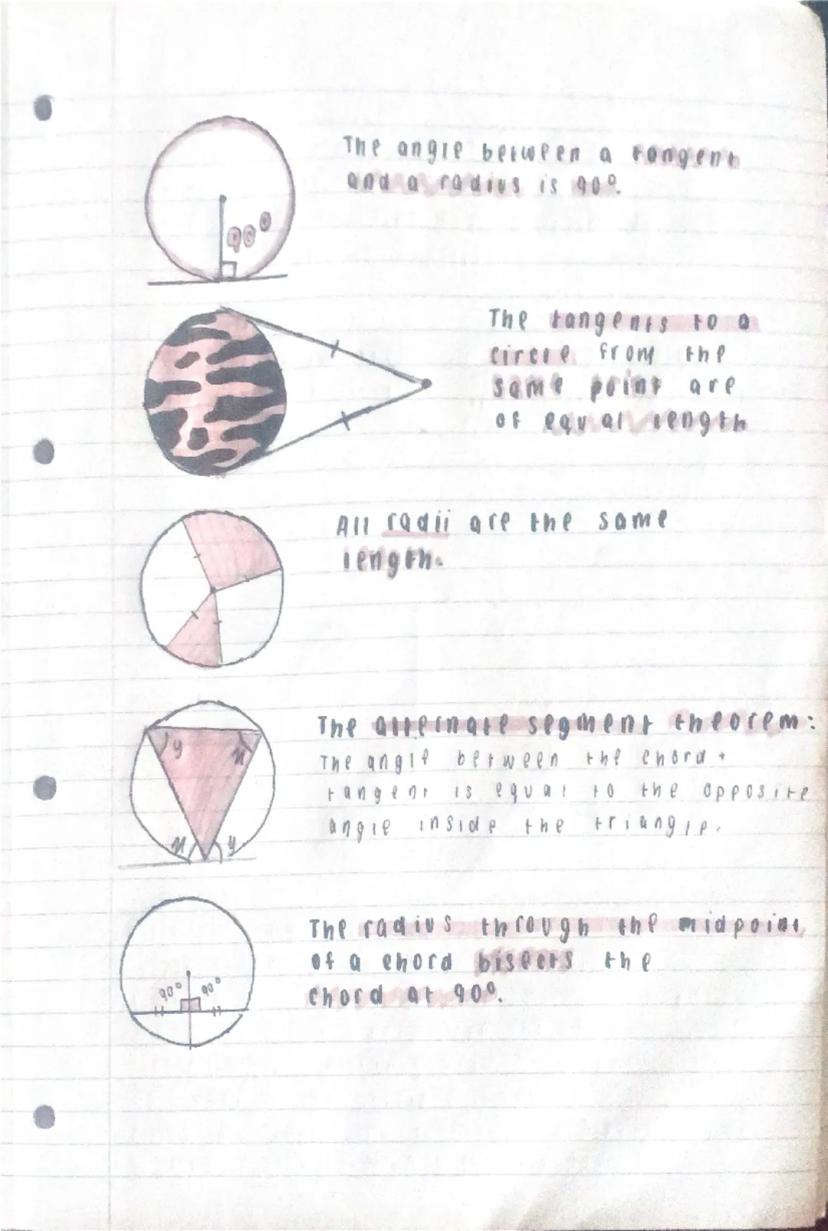 The angle between a tangent
and a radius is 90°.
90°
The tangents to a
circle from the
same point are
of equal length
All radii are the same
length.
The alternate segment theorem:
y x
The angle between the chord +
tangent is equal to the opposite
angle inside the triangle.
x y
The radius through the midpoint
of a chord bisects the
90° 90°
chord at 90°.